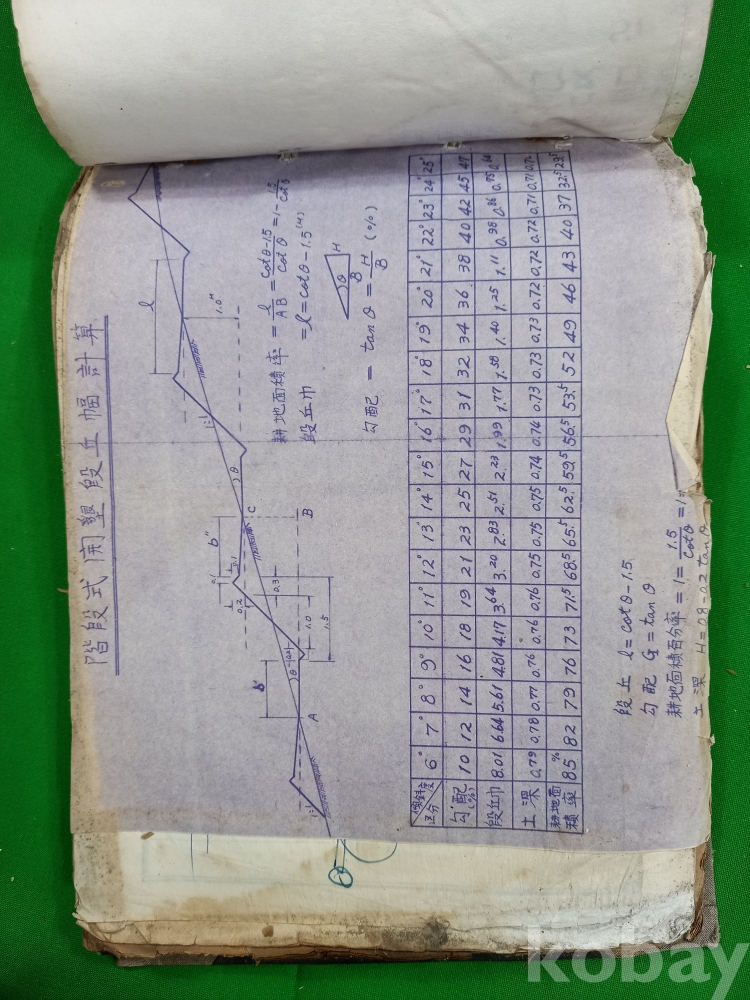 階段式開墾段丘幅計算
l
1.0ᴹ
1:1
θ
b"
C
0.1
0.2
0.3
B
1.0
1.5
b'
A
耕地面積率 = l/AB = cotθ-1.5/cotθ = 1-1.5/cotθ
段丘巾 = l = cotθ - 1.5 (M)
勾配 = tanθ = H/B (%)
H
θ
B
傾斜度 区分 6° 7° 8° 9° 10° 11° 12° 13° 14° 15° 16° 17° 18° 19° 20° 21° 22° 23° 24° 25°
勾配(%) 10 12 14 16 18 19 21 23 25 27 29 31 32 34 36 38 40 42 45 47
段丘巾 8.01 6.64 5.61 4.81 4.17 3.64 3.20 2.83 2.51 2.23 1.99 1.77 1.58 1.40 1.25 1.11 0.98 0.86 0.75 0.64
土深 0.79 0.78 0.77 0.76 0.76 0.76 0.75 0.75 0.75 0.74 0.74 0.73 0.73 0.73 0.72 0.72 0.72 0.71 0.71
耕地面積率 85% 82 79 76 73 71.5 68.5 65.5 62.5 59.5 56.5 53.5 52 49 46 43 40 37 32.5 29.5
段丘 l = cotθ - 1.5
勾配 G = tanθ
耕地面積百分率 = 1 = 1.5/cotθ = 1
土深 H = 0.8 - 0.2 tanθ
kobay